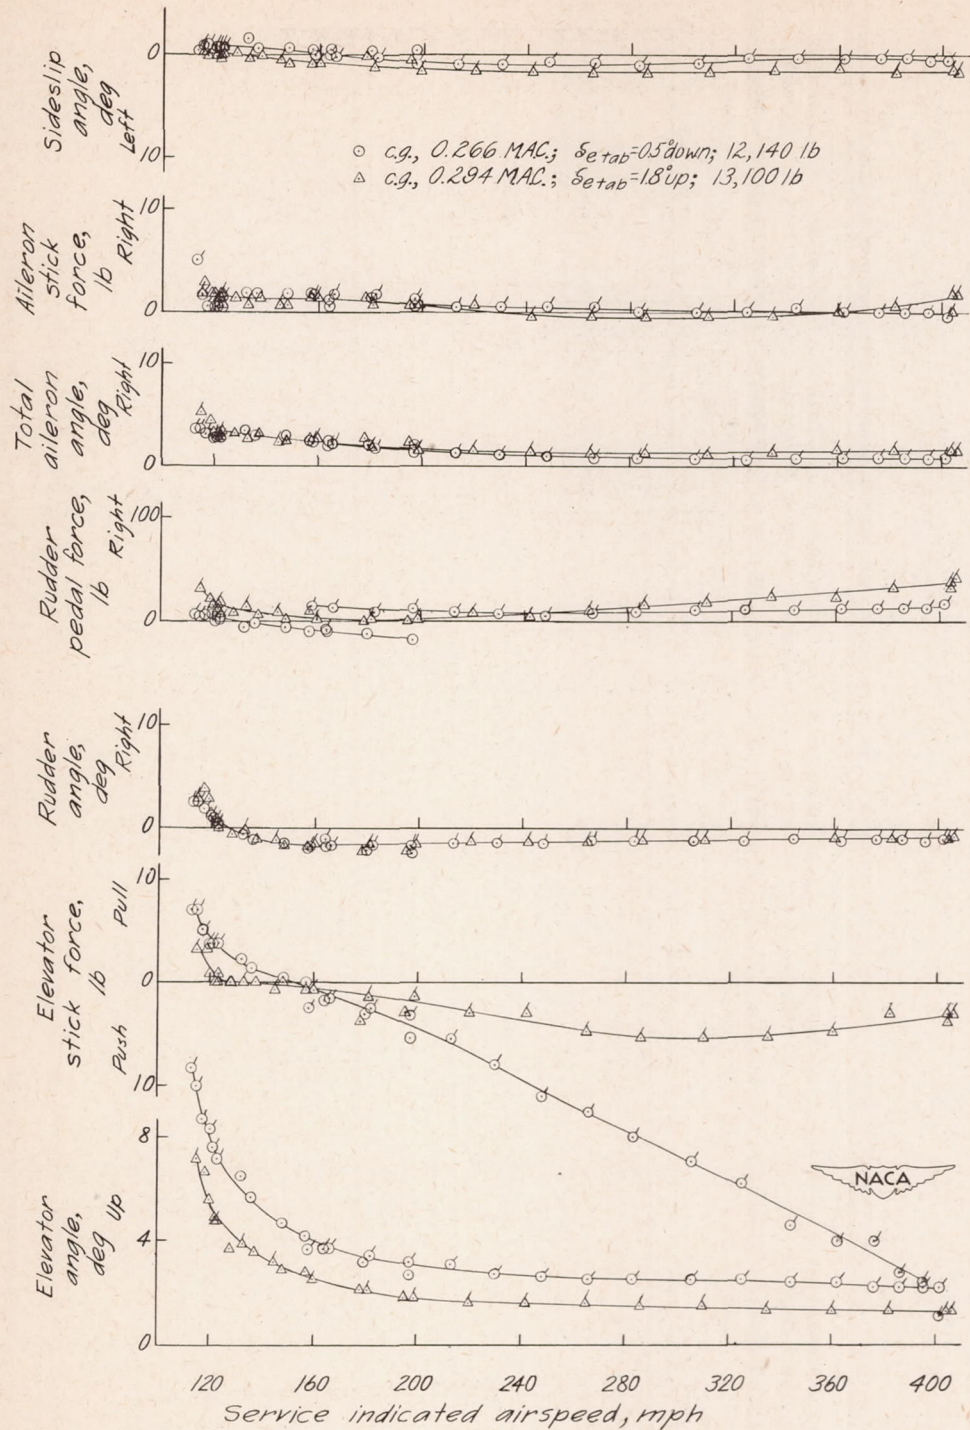 Sideslip
angle,
deg
Left
0
10
⊙ c.g., 0.266 MAC.; δe tab=0.5° down; 12,140 lb
△ c.g., 0.294 MAC.; δe tab=1.8° up; 13,100 lb
Aileron
stick
force,
lb
Right
10
0
Total
aileron
angle,
deg
Right
10
0
Rudder
pedal force,
lb
Right
100
0
Rudder
angle,
deg
Right
10
0
Elevator
stick force,
lb
Push Pull
10
0
10
Elevator
angle,
deg
Up
8
4
0
NACA
120 160 200 240 280 320 360 400
Service indicated airspeed, mph